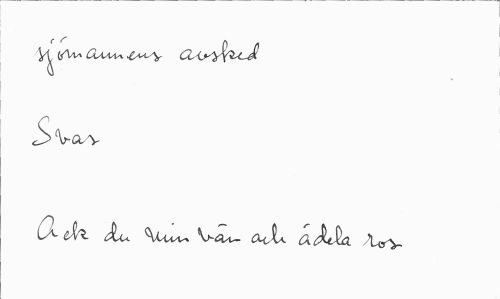 sjömannens avsked
Svar
Ack du min vän ack ädela ros